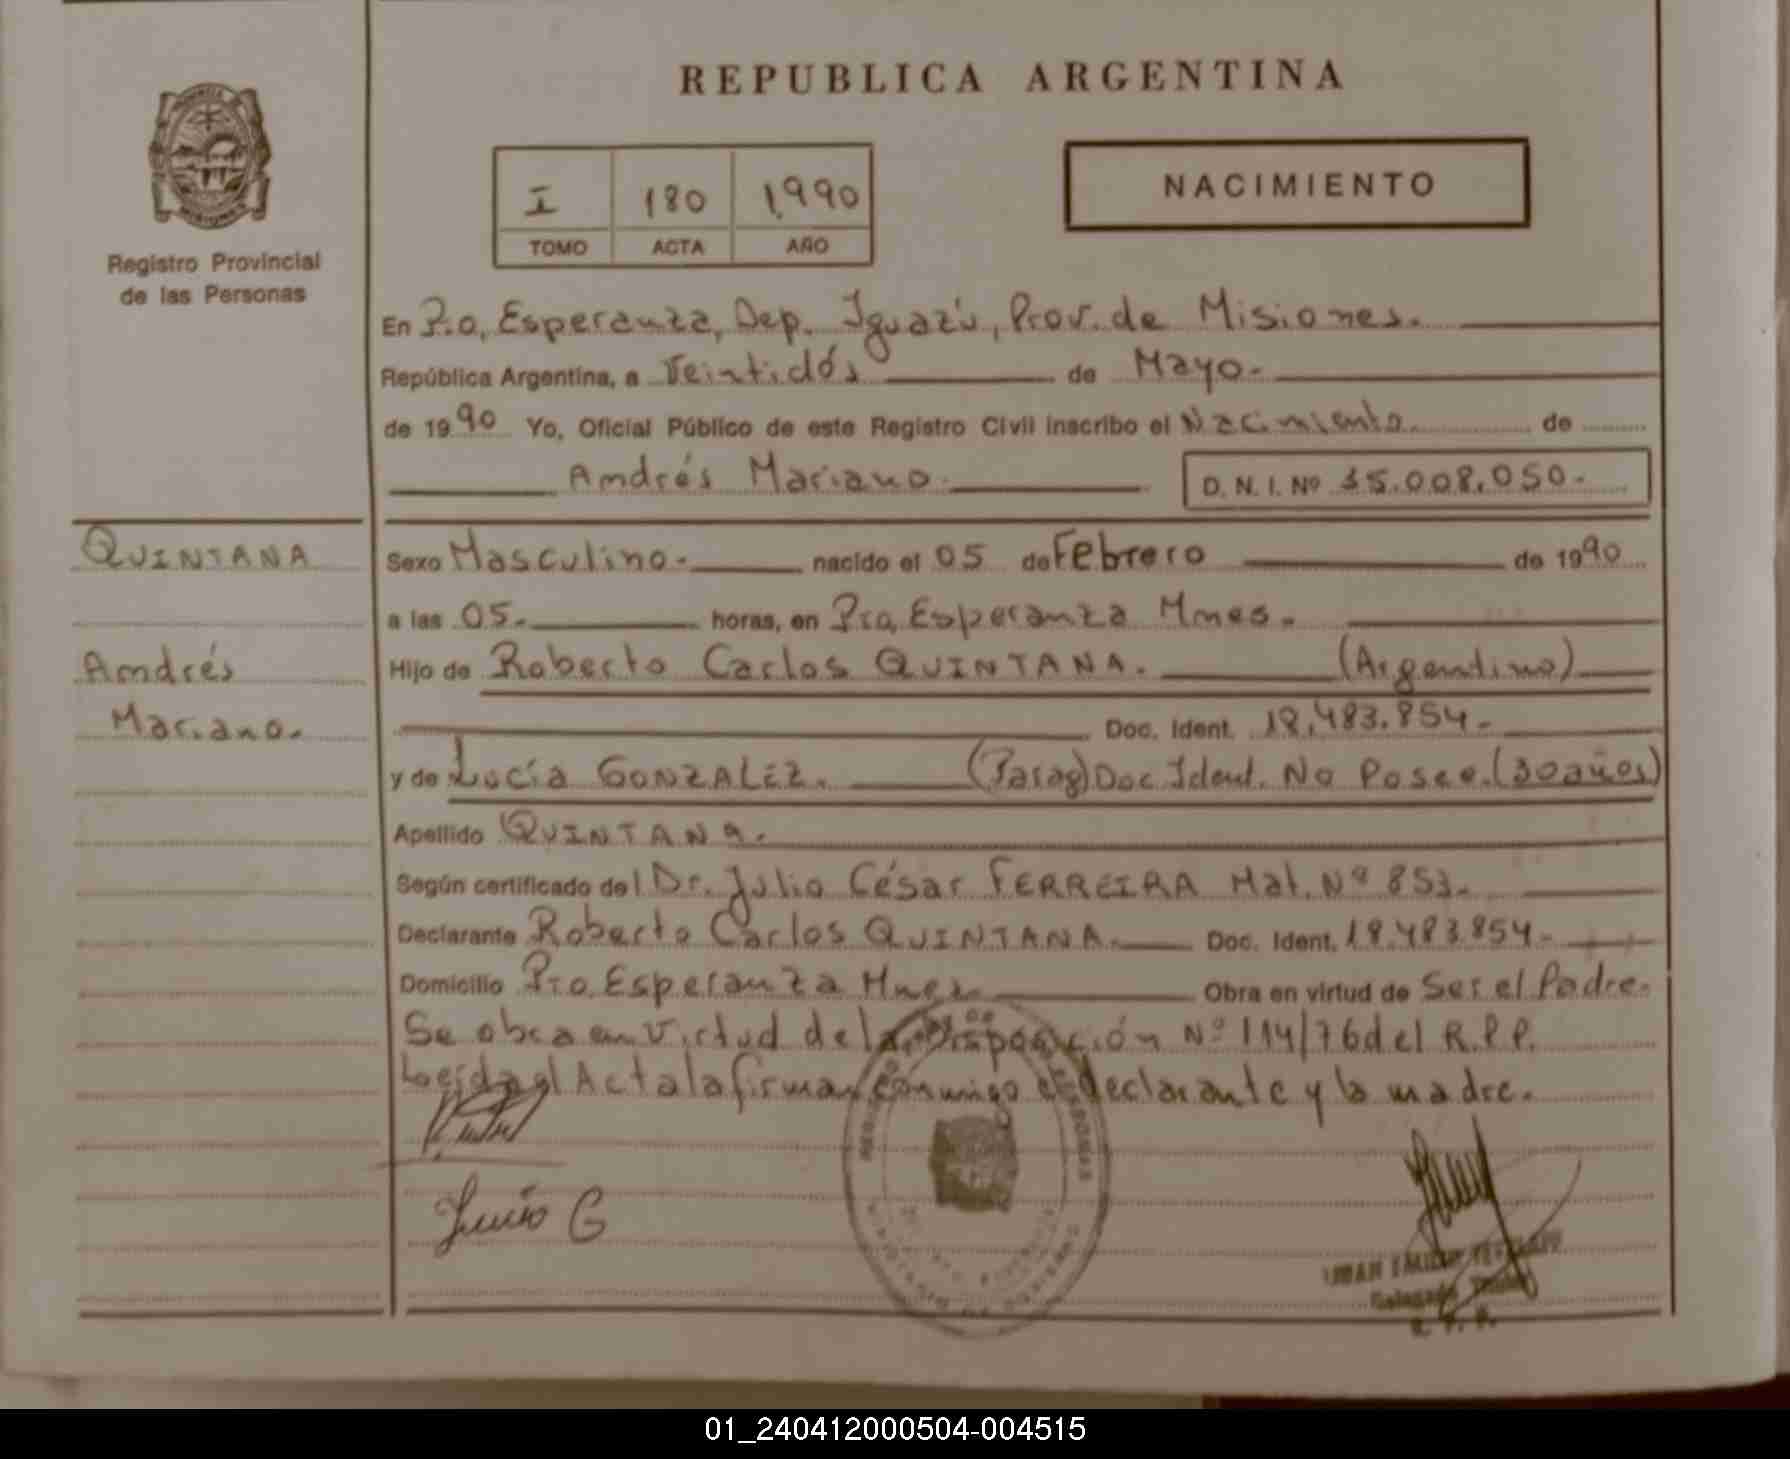 REPUBLICA ARGENTINA
I 180 1.990
TOMO ACTA AÑO
NACIMIENTO
MISIONES
Registro Provincial
de las Personas
En Pto, Esperanza, Dep. Iguazú, Prov. de Misiones.
República Argentina, a Veintidós de Mayo.
de 1990 Yo, Oficial Público de este Registro Civil inscribo el Nacimiento. de
Andrés Mariano.
D. N. I. Nº 35.008.050.-
QUINTANA
Andrés
Mariano.
Sexo Masculino.- nacido el 05 de Febrero de 1990
a las 05.- horas, en Pto, Esperanza Mnes.
Hijo de Roberto Carlos QUINTANA. (Argentino)
Doc. Ident. 18.483.854.-
y de Lucía GONZALEZ. (Parag) Doc Ident. No Posee. (30 años)
Apellido QUINTANA.
Según certificado del Dr. Julio César FERREIRA Mat. Nº 853.
Declarante Roberto Carlos QUINTANA. Doc. Ident. 18.483.854.-
Domicilio Pto. Esperanza Mnes. Obra en virtud de Ser el Padre.
Se obra en Virtud de la Disposición Nº 114/76 del R.P.P.
Leída el Acta la firman conmigo el declarante y la madre.
Lucía G
R. P. P.
01_240412000504-004515